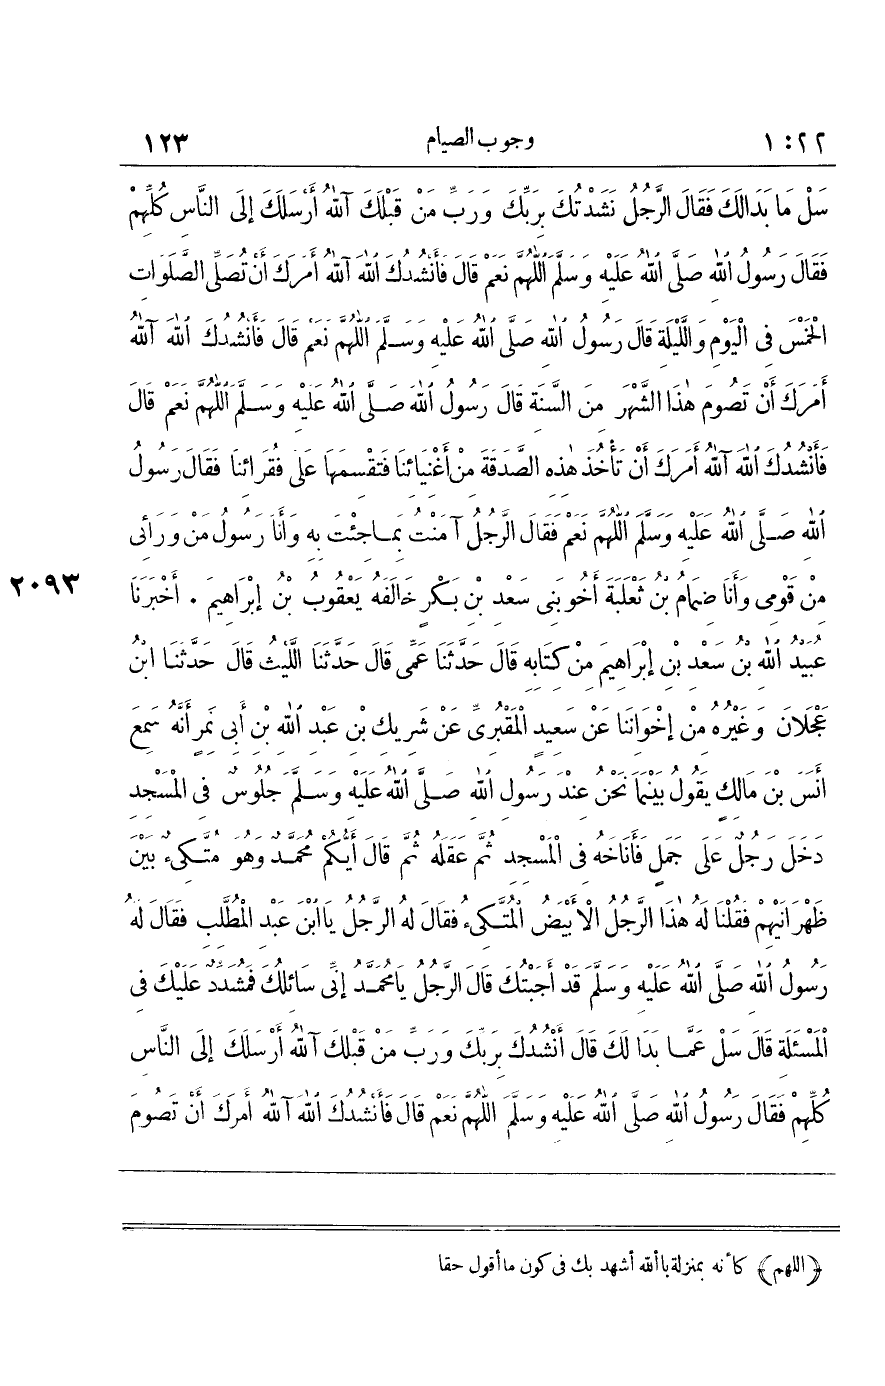 ٢٢ : ١ وجوب الصيام ١٢٣
سَلْ مَا بَدَا لَكَ فَقَالَ الرَّجُلُ نَشَدْتُكَ بِرَبِّكَ وَرَبِّ مَنْ قَبْلَكَ آللهُ أَرْسَلَكَ إِلَى النَّاسِ كُلِّهِمْ
فَقَالَ رَسُولُ اللهِ صَلَّى اللهُ عَلَيْهِ وَسَلَّمَ اللّٰهُمَّ نَعَمْ قَالَ فَأَنْشُدُكَ اللهَ آللهُ أَمَرَكَ أَنْ تُصَلِّيَ الصَّلَوَاتِ
الْخَمْسَ فِي الْيَوْمِ وَاللَّيْلَةِ قَالَ رَسُولُ اللهِ صَلَّى اللهُ عَلَيْهِ وَسَلَّمَ اللّٰهُمَّ نَعَمْ قَالَ فَأَنْشُدُكَ اللهَ آللهُ
أَمَرَكَ أَنْ تَصُومَ هٰذَا الشَّهْرَ مِنَ السَّنَةِ قَالَ رَسُولُ اللهِ صَلَّى اللهُ عَلَيْهِ وَسَلَّمَ اللّٰهُمَّ نَعَمْ قَالَ
فَأَنْشُدُكَ اللهَ آللهُ أَمَرَكَ أَنْ تَأْخُذَ هٰذِهِ الصَّدَقَةَ مِنْ أَغْنِيَائِنَا فَتَقْسِمَهَا عَلَى فُقَرَائِنَا فَقَالَ رَسُولُ
اللهِ صَلَّى اللهُ عَلَيْهِ وَسَلَّمَ اللّٰهُمَّ نَعَمْ فَقَالَ الرَّجُلُ آمَنْتُ بِمَا جِئْتَ بِهِ وَأَنَا رَسُولُ مَنْ وَرَائِي
مِنْ قَوْمِي وَأَنَا ضِمَامُ بْنُ ثَعْلَبَةَ أَخُو بَنِي سَعْدِ بْنِ بَكْرٍ خَالَفَهُ يَعْقُوبُ بْنُ إِبْرَاهِيمَ . أَخْبَرَنَا ٢٠٩٣
عُبَيْدُ اللهِ بْنُ سَعْدِ بْنِ إِبْرَاهِيمَ مِنْ كِتَابِهِ قَالَ حَدَّثَنَا عَمِّي قَالَ حَدَّثَنَا اللَّيْثُ قَالَ حَدَّثَنَا ابْنُ
عَجْلَانَ وَغَيْرُهُ مِنْ إِخْوَانِنَا عَنْ سَعِيدٍ الْمَقْبُرِيِّ عَنْ شَرِيكِ بْنِ عَبْدِ اللهِ بْنِ أَبِي نَمِرٍ أَنَّهُ سَمِعَ
أَنَسَ بْنَ مَالِكٍ يَقُولُ بَيْنَمَا نَحْنُ عِنْدَ رَسُولِ اللهِ صَلَّى اللهُ عَلَيْهِ وَسَلَّمَ جُلُوسٌ فِي الْمَسْجِدِ
دَخَلَ رَجُلٌ عَلَى جَمَلٍ فَأَنَاخَهُ فِي الْمَسْجِدِ ثُمَّ عَقَلَهُ ثُمَّ قَالَ أَيُّكُمْ مُحَمَّدٌ وَهُوَ مُتَّكِئٌ بَيْنَ
ظَهْرَانَيْهِمْ فَقُلْنَا لَهُ هٰذَا الرَّجُلُ الْأَبْيَضُ الْمُتَّكِئُ فَقَالَ لَهُ الرَّجُلُ يَا ابْنَ عَبْدِ الْمُطَّلِبِ فَقَالَ لَهُ
رَسُولُ اللهِ صَلَّى اللهُ عَلَيْهِ وَسَلَّمَ قَدْ أَجَبْتُكَ قَالَ الرَّجُلُ يَا مُحَمَّدُ إِنِّي سَائِلُكَ فَمُشَدِّدٌ عَلَيْكَ فِي
الْمَسْئَلَةِ قَالَ سَلْ عَمَّا بَدَا لَكَ قَالَ أَنْشُدُكَ بِرَبِّكَ وَرَبِّ مَنْ قَبْلَكَ آللهُ أَرْسَلَكَ إِلَى النَّاسِ
كُلِّهِمْ فَقَالَ رَسُولُ اللهِ صَلَّى اللهُ عَلَيْهِ وَسَلَّمَ اللّٰهُمَّ نَعَمْ قَالَ فَأَنْشُدُكَ اللهَ آللهُ أَمَرَكَ أَنْ تَصُومَ
﴿اللهم﴾ كأنه بمنزلة يا ألله أشهد بك في كون ما أقول حقا